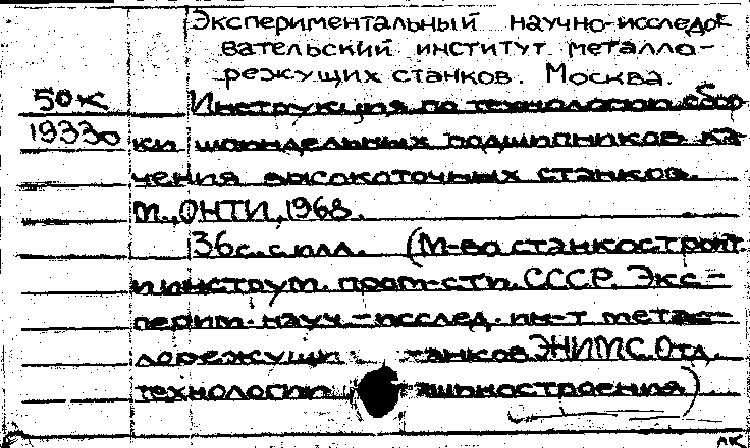 Экспериментальный научно-исследо-
вательский институт металло-
режущих станков. Москва.
50к Инструкция по технологии сбор-
19330 ки шпиндельных подшипников ка-
чения высокоточных станков.
М., ОНТИ, 1968.
36с. с илл. (М-во станкостроит.
и инструм. пром-сти СССР. Экс-
перим. науч.-исслед. ин-т метал-
лорежущи танков ЭНИМС. Отд.
технологии шиностроения)